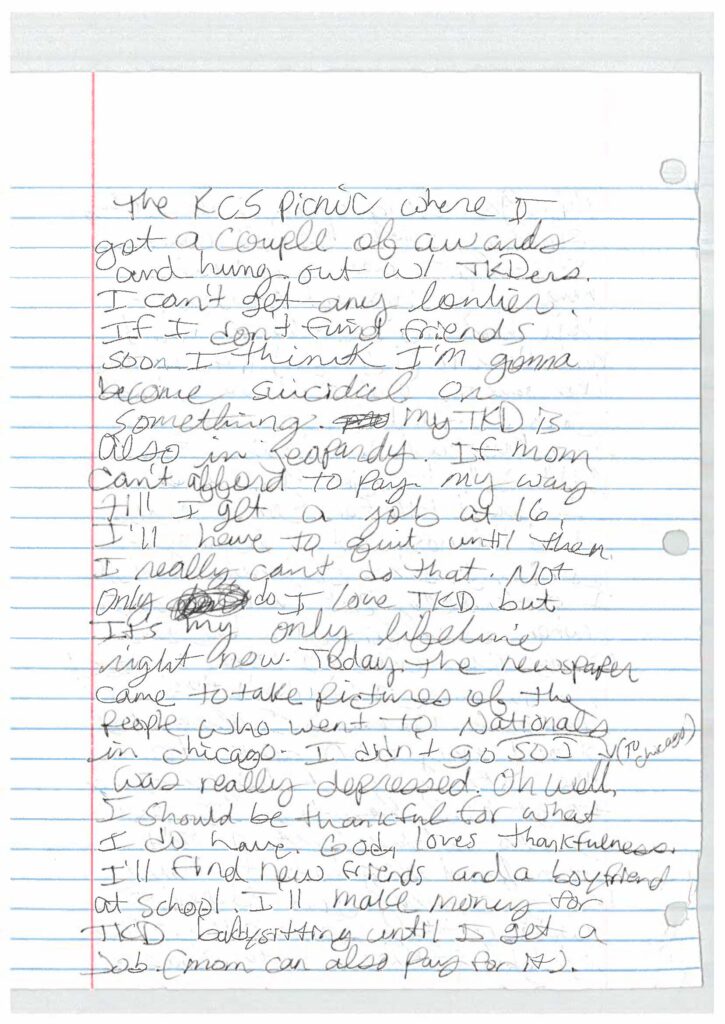 The KCS picnic where I
got a couple of awards
and hung out w/ TKDers.
I can't get any lonlier.
If I don't find friends
soon I think I'm gonna
become suicidal or
something. my TKD is
also in jeapardy. If mom
can't afford to pay my way
till I get a job at 16,
I'll have to quit until then.
I really can't do that. Not
only do I love TKD but
It's my only lifeline
right now. Today the newspaper
came to take pictures of the
people who went to Nationals
in chicago. I didn't go SO I (To chicago)
was really depressed. Oh well,
I should be thankful for what
I do have. God loves thankfulness.
I'll find new friends and a boyfriend
at school. I'll make money for
TKD babysitting until I get a
job. (mom can also pay for it).